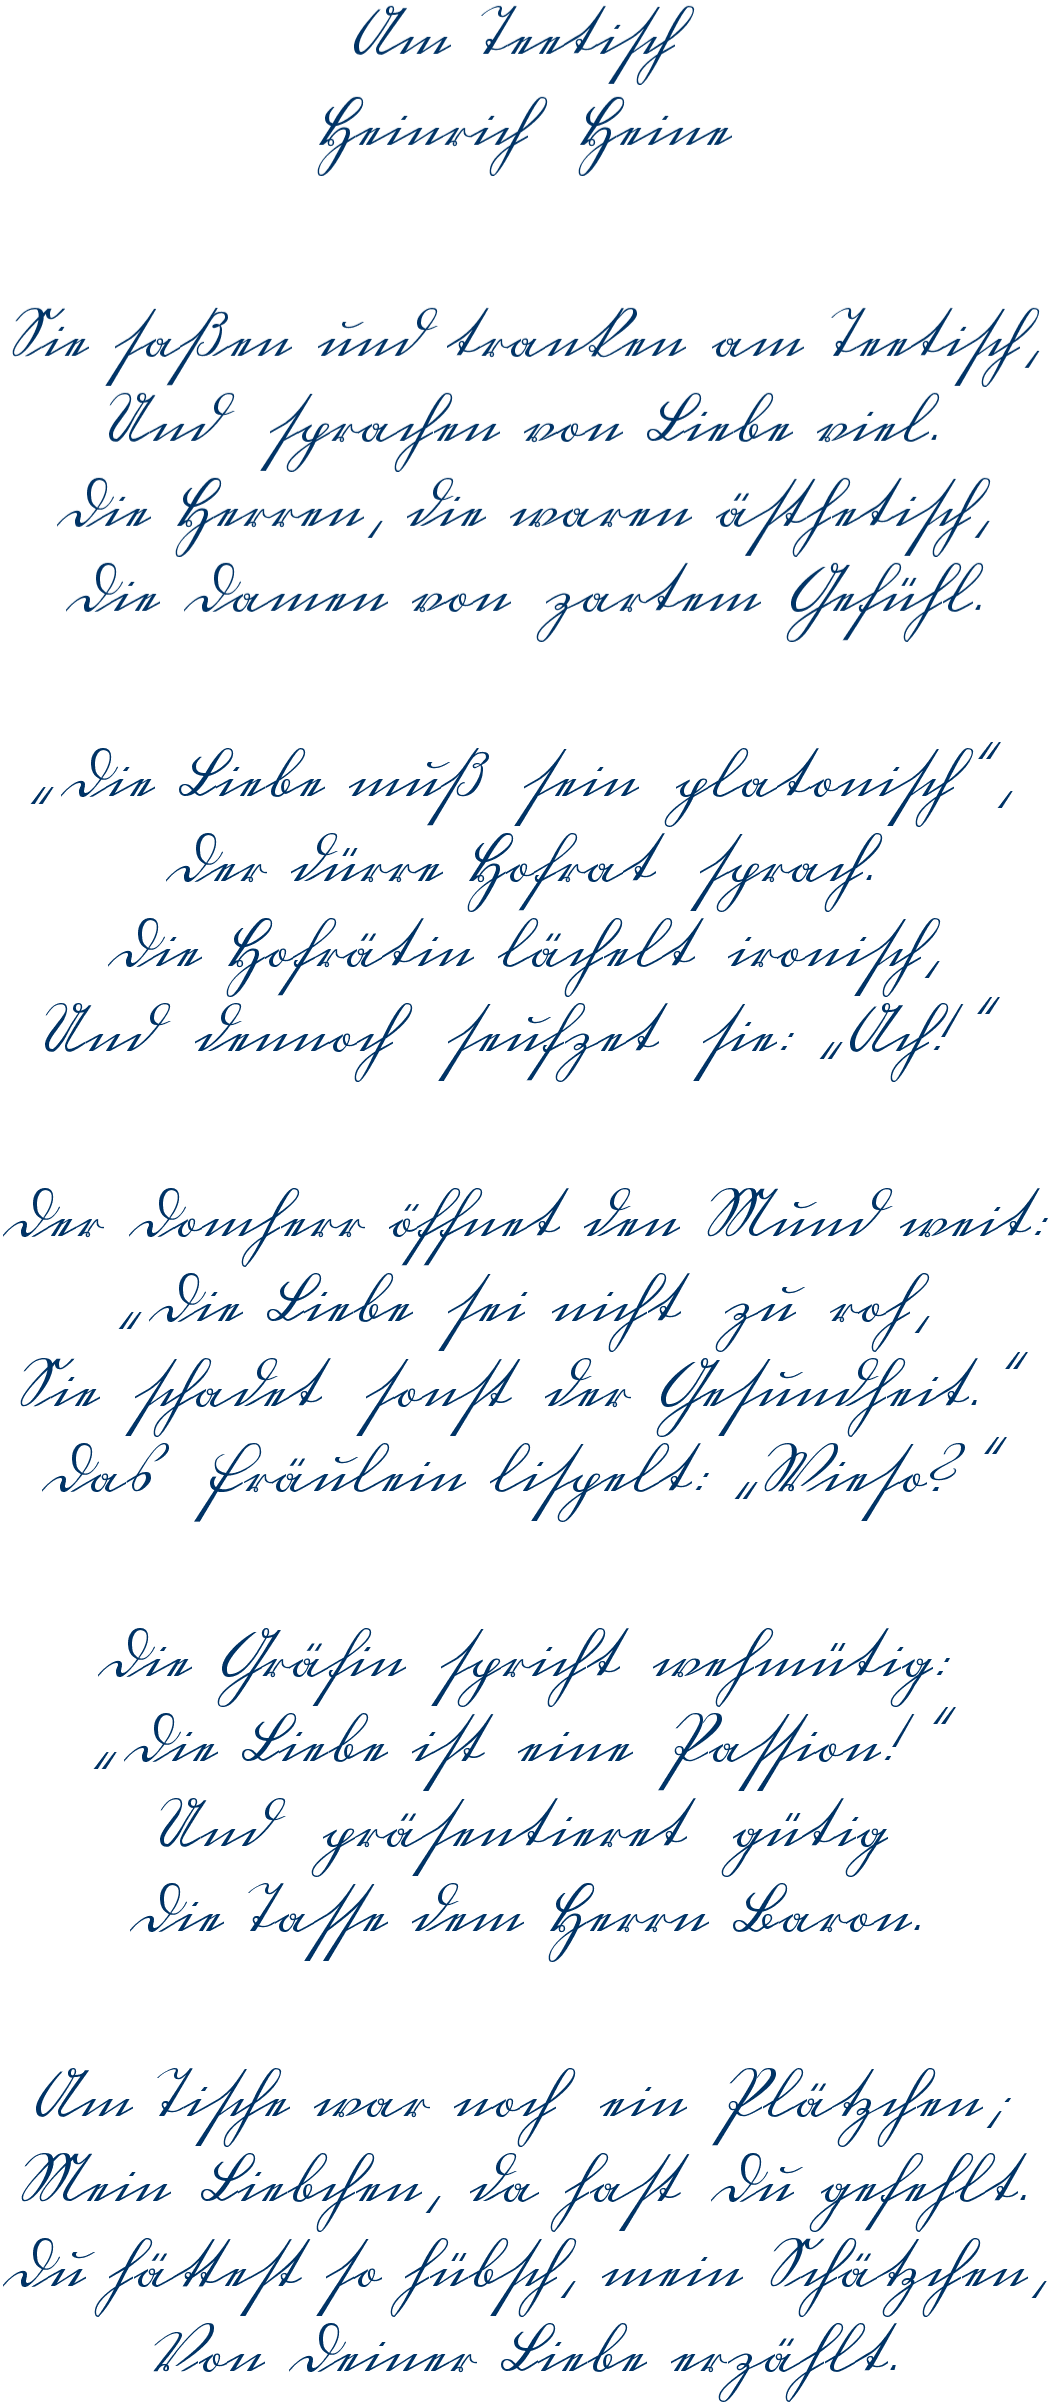 Am Teetisch
Heinrich Heine
Sie saßen und tranken am Teetisch,
Und sprachen von Liebe viel.
Die Herren, die waren ästhetisch,
Die Damen von zartem Gefühl.
„Die Liebe muß sein platonisch“,
Der dürre Hofrat sprach.
Die Hofrätin lächelt ironisch,
Und dennoch seufzet sie: „Ach!“
Der Domherr öffnet den Mund weit:
„Die Liebe sei nicht zu roh,
Sie schadet sonst der Gesundheit.“
Das Fräulein lispelt: „Wieso?“
Die Gräfin spricht wehmütig:
„Die Liebe ist eine Passion!“
Und präsentieret gütig
Die Tasse dem Herrn Baron.
Am Tische war noch ein Plätzchen;
Mein Liebchen, da hast Du gefehlt.
Du hättest so hübsch, mein Schätzchen,
Von Deiner Liebe erzählt.